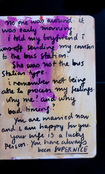 no one was around it
was early morning
I told my boyfriend i
was sending my cousin
to the bus station.
She was not the bus
Station type
i remember not being
able to process my feelings
why me and why
bad timing!
You are married now
and i am happy for you
your wife is a lucky
Person. You have always
been